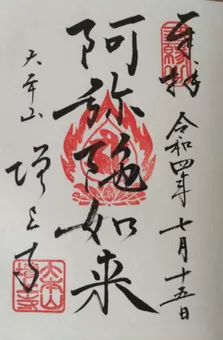 奉拝
令和四年七月十五日
阿弥陀如来
大本山
増上寺